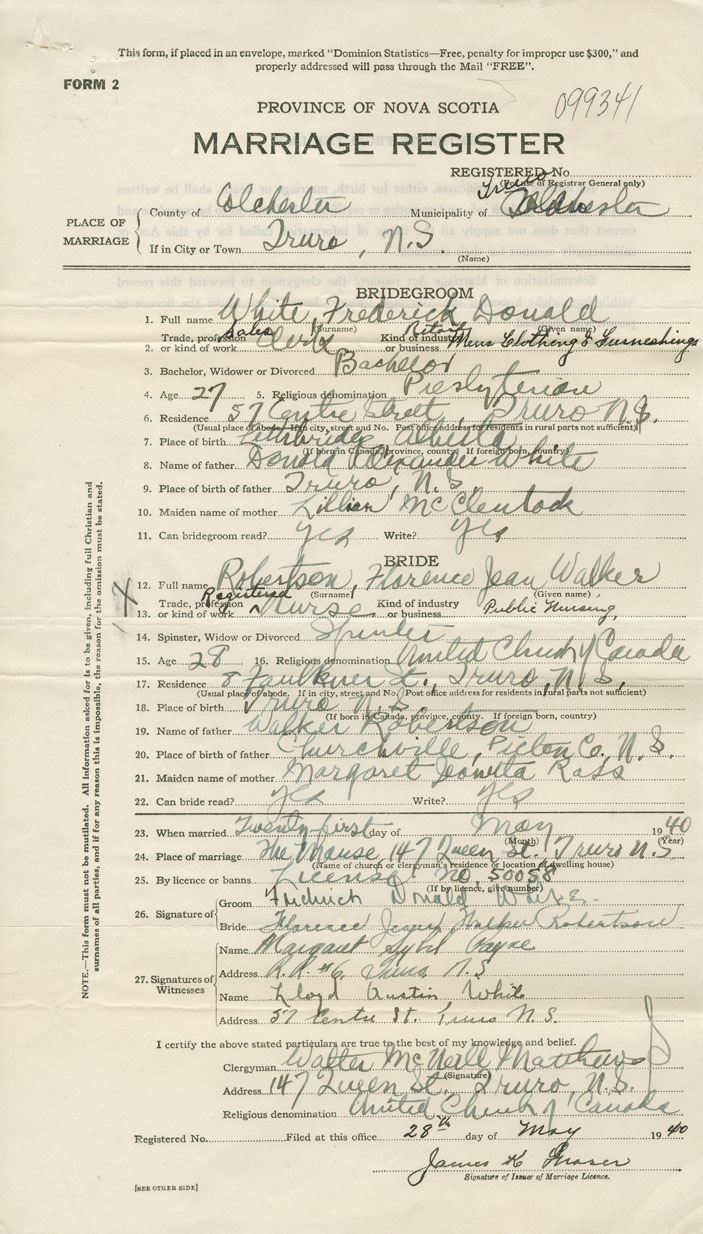 This form, if placed in an envelope, marked "Dominion Statistics—Free, penalty for improper use $300," and
properly addressed will pass through the Mail "FREE".
FORM 2
099341
PROVINCE OF NOVA SCOTIA
MARRIAGE REGISTER
REGISTERED No.
(For use of Registrar General only)
PLACE OF MARRIAGE
County of Colchester Municipality of Truro
If in City or Town Truro, N.S.
(Name)
BRIDEGROOM
1. Full name White, Frederick Donald
(Surname) (Given name)
2. Trade, profession or kind of work Sales Clerk Kind of industry or business Retail Mens Clothing & Furnishings
3. Bachelor, Widower or Divorced Bachelor
4. Age 27 5. Religious denomination Presbyterian
6. Residence 57 Centre Street, Truro N.S.
(Usual place of abode. If in city, street and No. Post office address for residents in rural parts not sufficient)
7. Place of birth Lethbridge Alberta
(If born in Canada, province, county. If foreign born, country)
8. Name of father Donald Alexander White
9. Place of birth of father Truro, N.S.
10. Maiden name of mother Lillian McClintock
11. Can bridegroom read? Yes Write? Yes
BRIDE
12. Full name Robertson, Florence Jean Walker
(Surname) (Given name)
13. Trade, profession or kind of work Registered Nurse Kind of industry or business Public Nursing
14. Spinster, Widow or Divorced Spinster
15. Age 28 16. Religious denomination United Church of Canada
17. Residence 8 Faulkner St., Truro, N.S.
(Usual place of abode. If in city, street and No. Post office address for residents in rural parts not sufficient)
18. Place of birth Truro N.S.
(If born in Canada, province, county. If foreign born, country)
19. Name of father Walker Robertson
20. Place of birth of father Churchville, Pictou Co. N.S.
21. Maiden name of mother Margaret Ross
22. Can bride read? Yes Write? Yes
23. When married Twenty-first day of May 1940
(Month) (Year)
24. Place of marriage The Manse, 147 Queen St. Truro N.S
(Name of church or clergyman's residence or location of dwelling house)
25. By licence or banns License No. 50058
(If by licence, give number)
26. Signature of
Groom Frederick Donald White
Bride Florence Jean Walker Robertson
27. Signatures of Witnesses
Name Margaret Sybil Payne
Address R.R. #6 Truro N.S
Name Lloyd Austin White
Address 57 Centre St. Truro N.S.
I certify the above stated particulars are true to the best of my knowledge and belief.
Clergyman Walter McNeill Matthews
(Signature)
Address 147 Queen St., Truro, N.S.
Religious denomination United Church of Canada
Registered No. Filed at this office 28th day of May 1940
James K Fraser
Signature of Issuer of Marriage Licence.
[SEE OTHER SIDE]
NOTE.—This form must not be mutilated. All information asked for is to be given, including full Christian and
surnames of all parties, and if for any reason this is impossible, the reason for the omission must be stated.